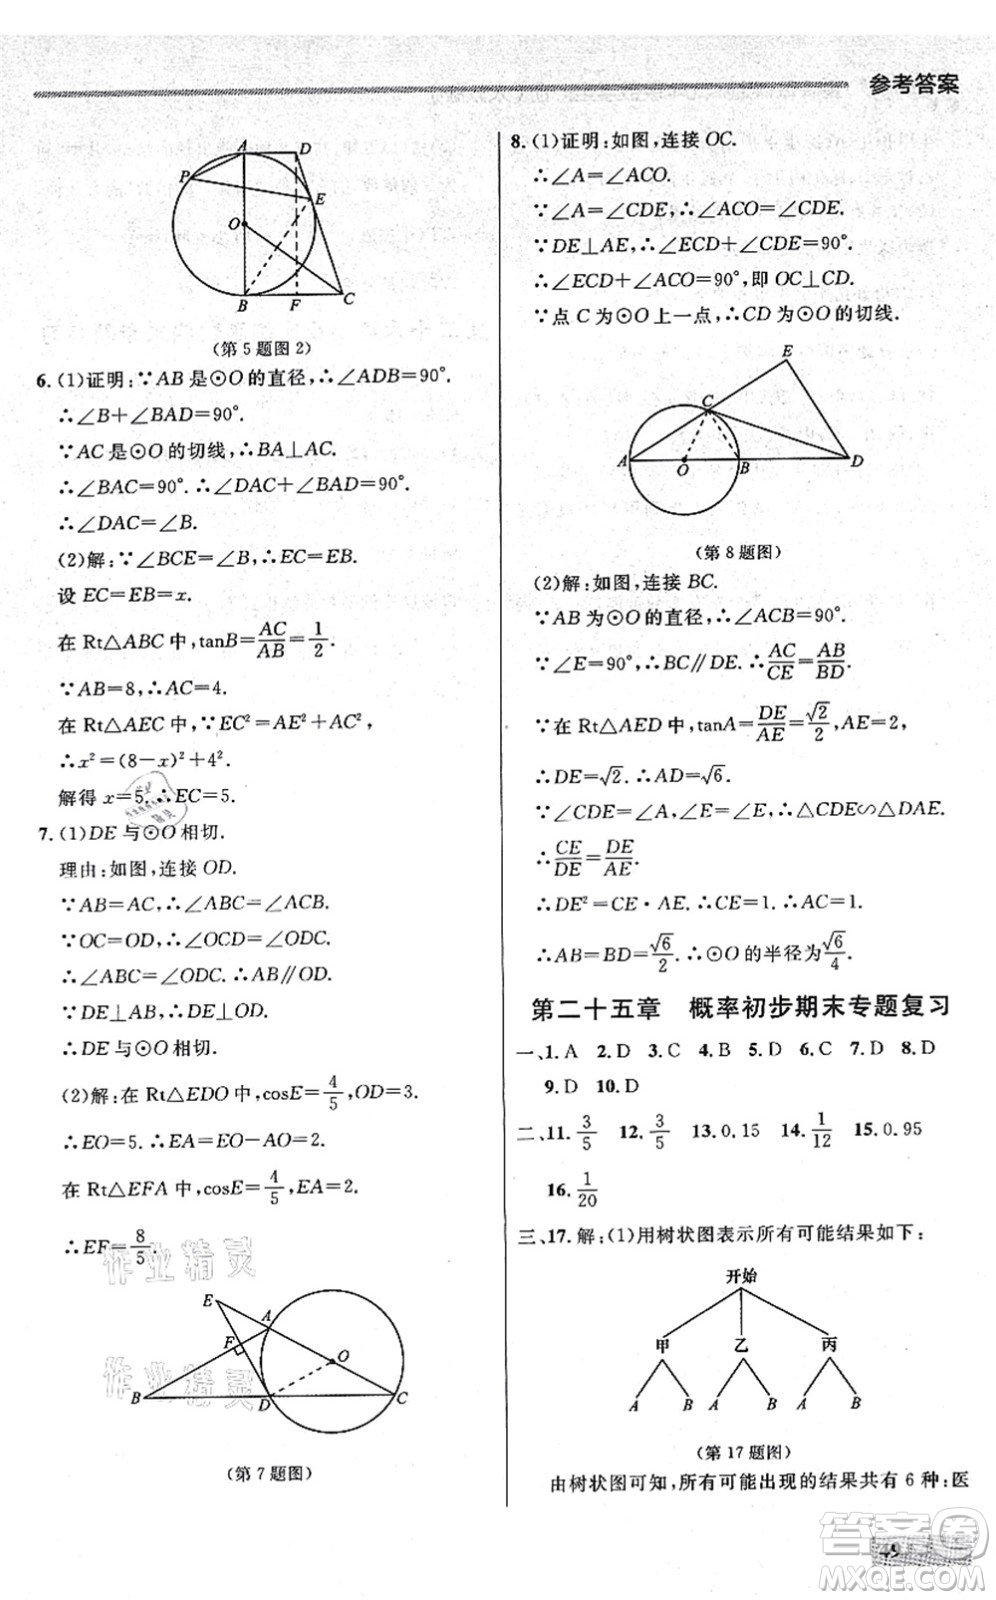 参考答案
A
D
P
E
O
B
F
C
(第5题图2)
6. (1)证明:∵AB是⊙O的直径,∴∠ADB=90°.
∴∠B+∠BAD=90°.
∵AC是⊙O的切线,∴BA⊥AC.
∴∠BAC=90°.∴∠DAC+∠BAD=90°.
∴∠DAC=∠B.
(2)解:∵∠BCE=∠B,∴EC=EB.
设EC=EB=x.
在Rt△ABC中,tanB=AC/AB=1/2.
∵AB=8,∴AC=4.
在Rt△AEC中,∵EC²=AE²+AC²,
∴x²=(8-x)²+4².
解得x=5.∴EC=5.
7. (1)DE与⊙O相切.
理由:如图,连接OD.
∵AB=AC,∴∠ABC=∠ACB.
∵OC=OD,∴∠OCD=∠ODC.
∴∠ABC=∠ODC.∴AB∥OD.
∵DE⊥AB,∴DE⊥OD.
∴DE与⊙O相切.
(2)解:在Rt△EDO中,cosE=4/5,OD=3.
∴EO=5.∴EA=EO-AO=2.
在Rt△EFA中,cosE=4/5,EA=2.
∴EF=8/5.
作业精灵
E
A
F
O
作业精灵
B
D
C
(第7题图)
8. (1)证明:如图,连接OC.
∴∠A=∠ACO.
∵∠A=∠CDE,∴∠ACO=∠CDE.
∵DE⊥AE,∴∠ECD+∠CDE=90°.
∴∠ECD+∠ACO=90°,即OC⊥CD.
∵点C为⊙O上一点,∴CD为⊙O的切线.
E
C
A
O
B
D
(第8题图)
(2)解:如图,连接BC.
∵AB为⊙O的直径,∴∠ACB=90°.
∵∠E=90°,∴BC∥DE.∴AC/CE=AB/BD.
∵在Rt△AED中,tanA=DE/AE=√2/2,AE=2,
∴DE=√2,AD=√6.
∵∠CDE=∠A,∠E=∠E,∴△CDE∽△DAE.
∴CE/DE=DE/AE.
∴DE²=CE·AE.∴CE=1.∴AC=1.
∴AB=BD=√6/2.∴⊙O的半径为√6/4.
第二十五章 概率初步期末专题复习
一、1. A 2. D 3. C 4. B 5. D 6. C 7. D 8. D
9. D 10. D
二、11. 3/5 12. 3/5 13. 0.15 14. 1/12 15. 0.95
16. 1/20
三、17. 解:(1)用树状图表示所有可能结果如下:
开始
甲 乙 丙
A B A B A B
(第17题图)
由树状图可知,所有可能出现的结果共有6种:医
答案圈
49
MXQE.COM